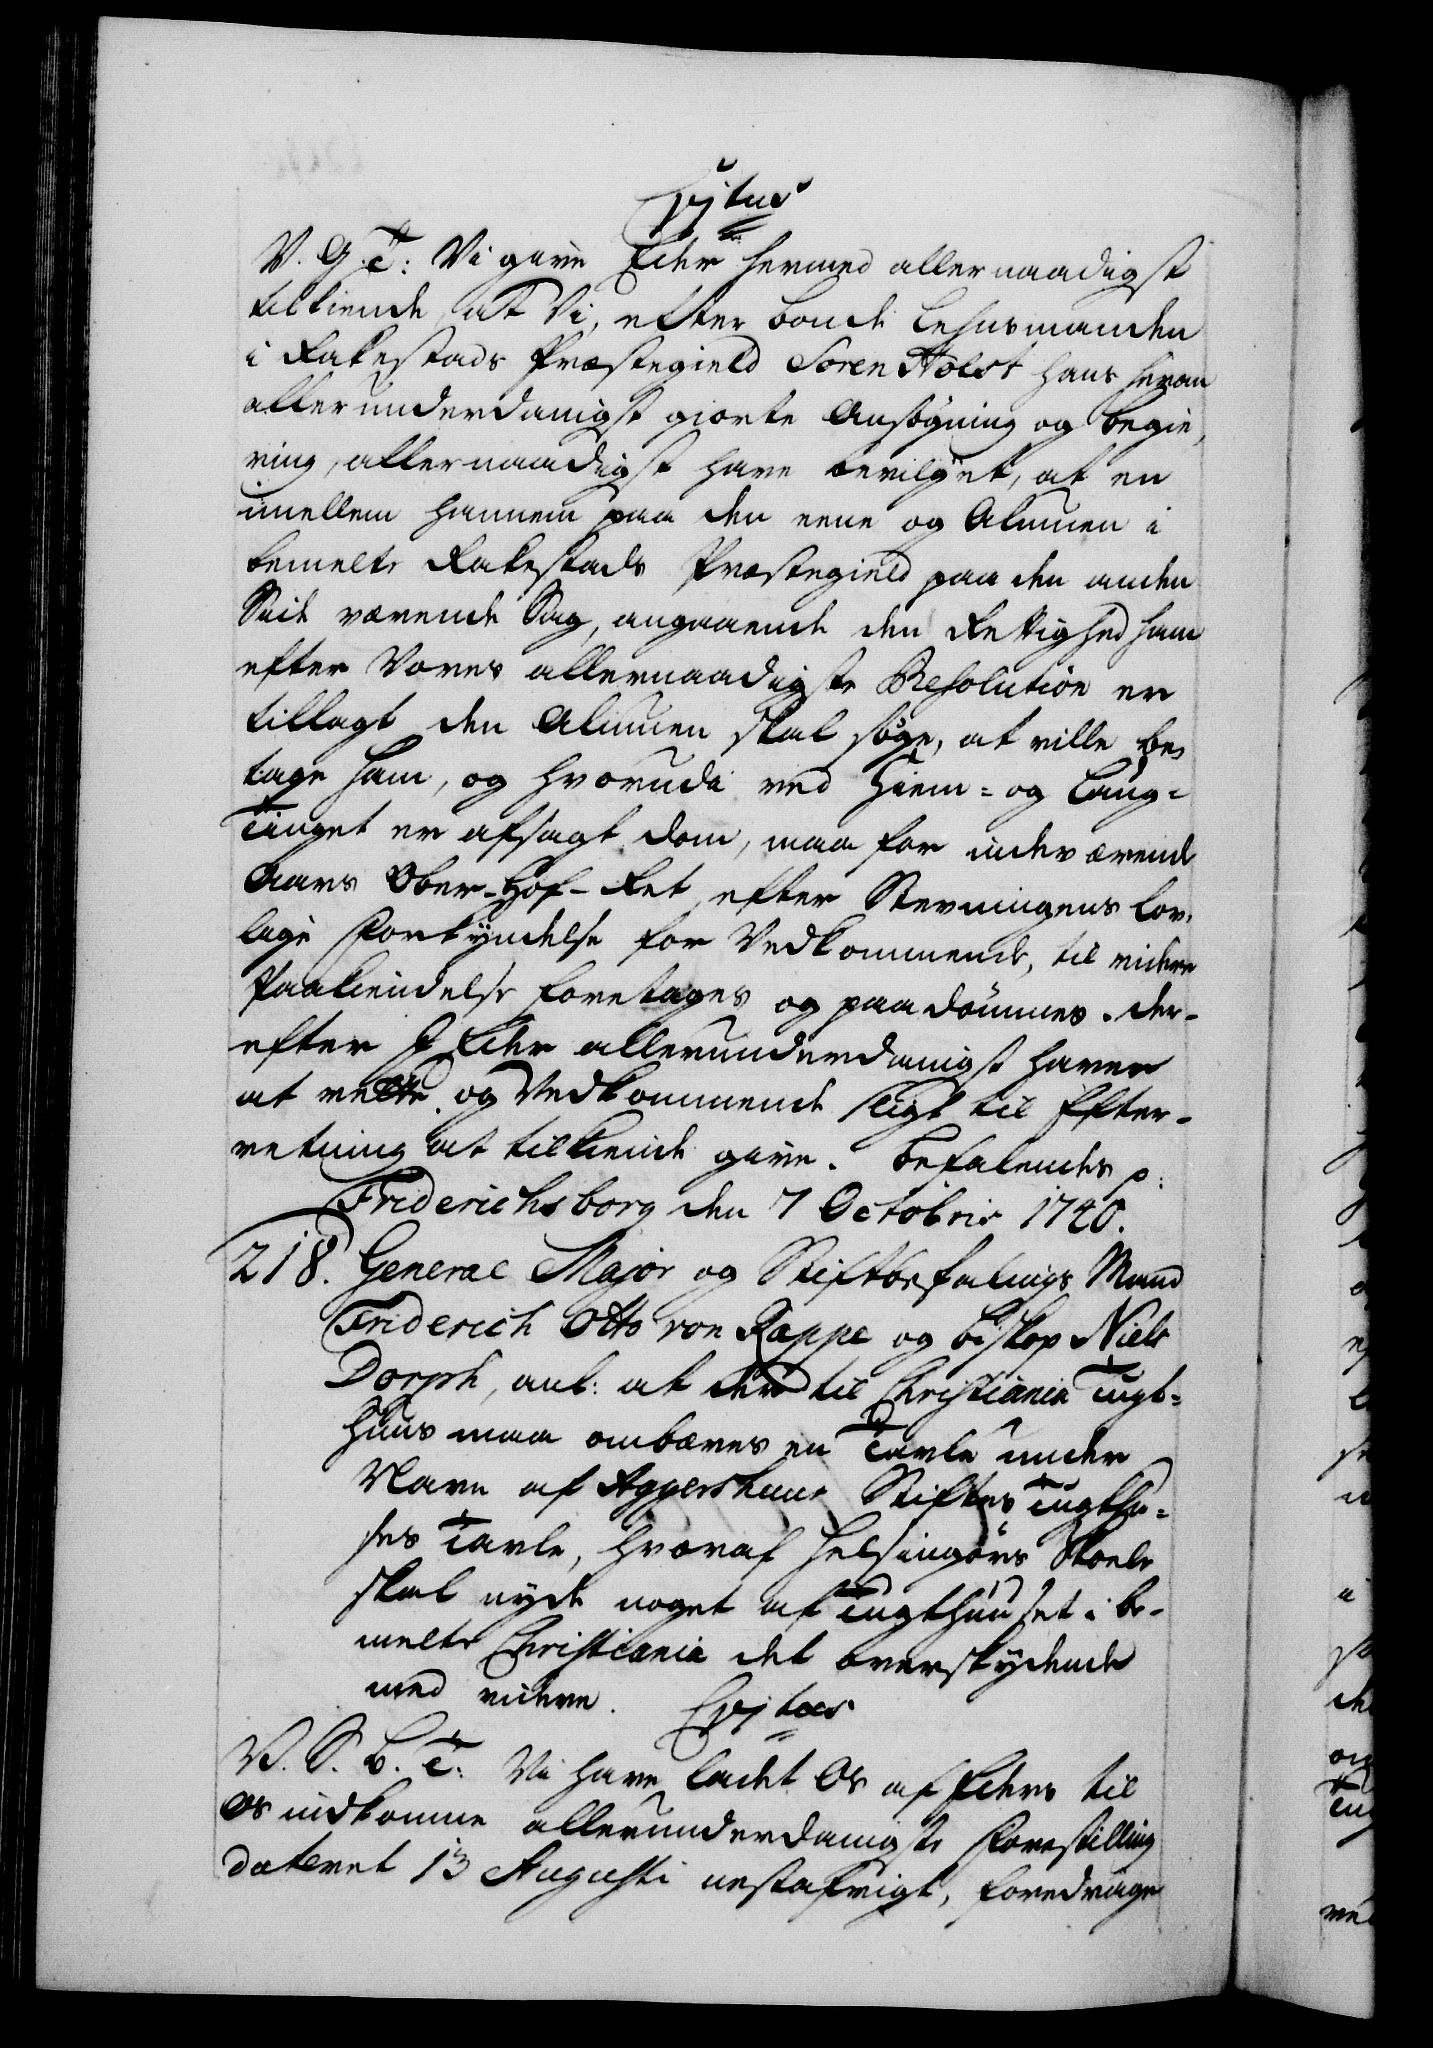 C6 tus
V. G. T: Vi give Eder hermed allernaadigst
tilkiende, at Vi, efter bonde Lehnsmanden
i Rakestads Præstegield Søren Holst hans herom
allerunderdanigst giorte Ansøgning og begie,
ring, allernaadigst have bevilget, at en
imellem hannem paa den eene og Almuen i
bemelte Rakestads Præstegield paa den anden
Side værende Sag, angaaende den Rettighed ham
efter Vores allernaadigste Resolution er
tillagt, den Almuen skal søge, at ville be,
tage ham, og hvorudi ved Hiem- og Laug-
Tinget er afsagt dom, maa for indeværende
Aars Ober-Hof-Ret, efter Stevningens lov,
lige Forkyndelse for Vedkommende, til videre
Paakiendelse foretages og paadømmes. Der-
efter I Eder allerunderdanigst haver
at rette og Vedkommende sligt til Efter-
retning at tilkiende give. Befalendes p:
Friderichsborg den 7 Octobris 1740.
218. General Major og Stiftbefalings Mand
Friderich Otto von Rappe og biskop Niels
Dorph, anl: at der til Christiania Tugt-
huus maa ombæres en Tavle under
Navn af Aggershuus Stiftes Tugthu-
ses Tavle, hvoraf Helsingørs Skole
skal nyde noget af Tugthuuset i be-
melte Christiania det overskydende
med videre.
V. S. B. T: Vi have ladet Os af Eders til
Os indkomne allerunderdanigste Forestilling
dateret 13 Augusti nestafvigt, foredrage